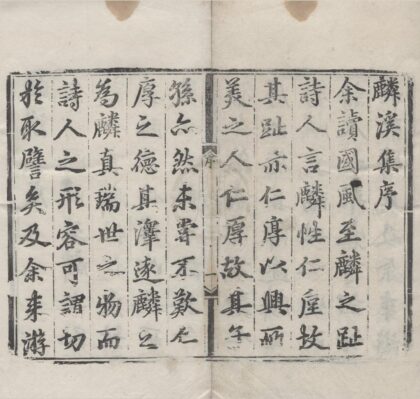 麟溪集序
余讀國風至麟之趾
詩人言麟性仁厚故
其趾亦仁厚以興所
美之人仁厚故其子
序
一
孫亦然未甞不歎仁
厚之德其澤遠麟之
為麟真瑞世之物而
詩人之形容可謂切
於取譬矣及余來游